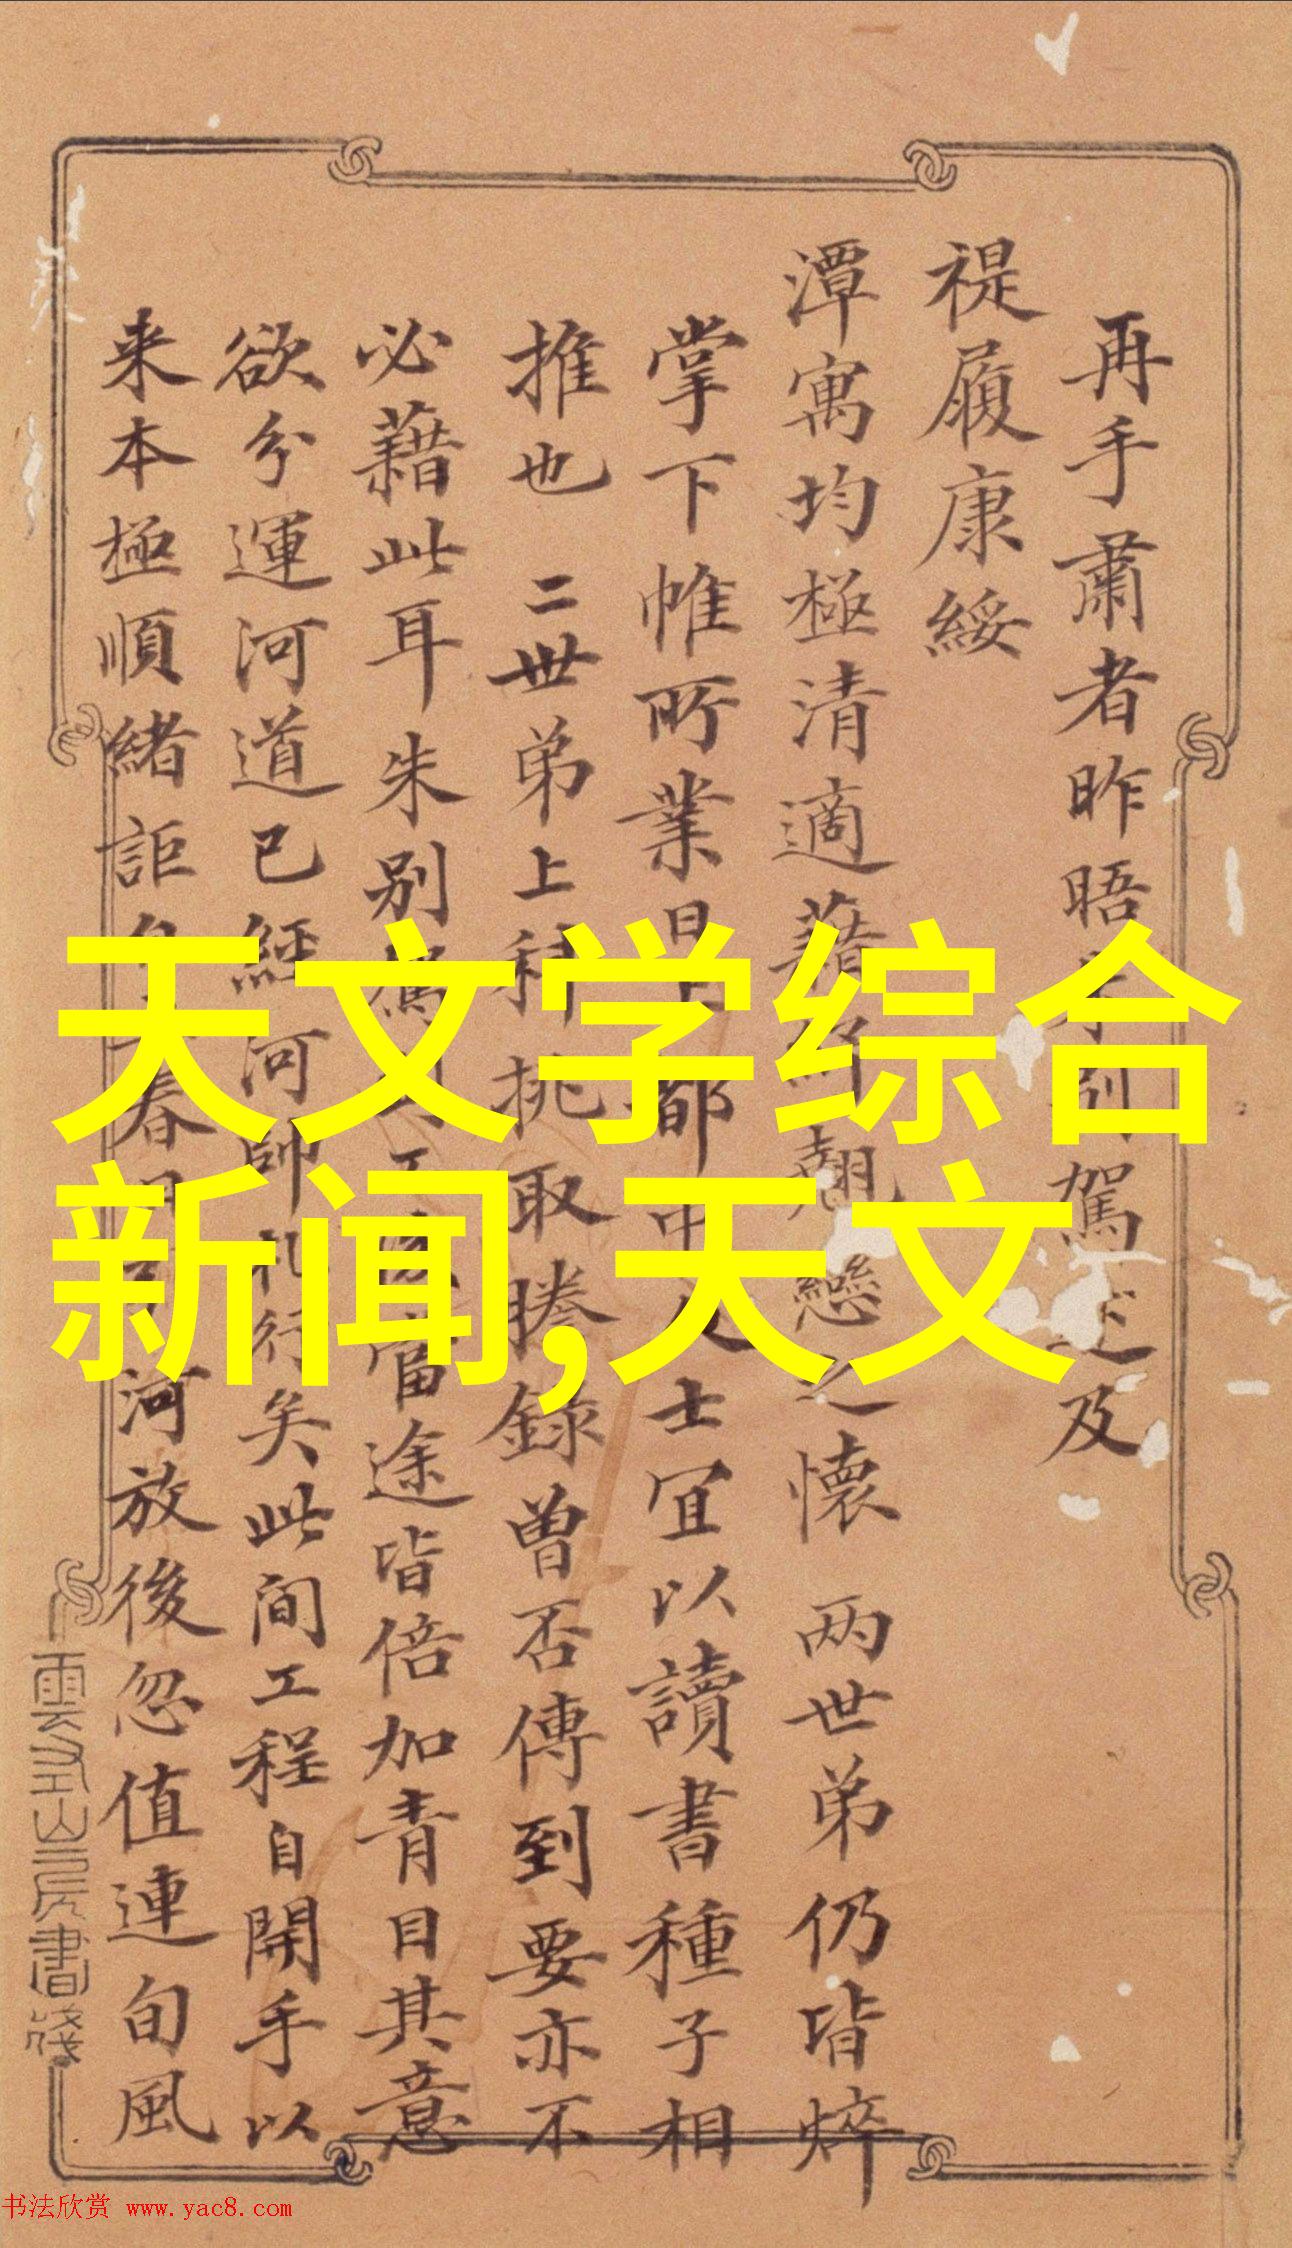 再手肅者昨晤
駕
及
禔履康綏
潭寓均極清適藉
戀之懷两世弟仍皆焠
掌下帷所業日
都中
士宜以讀書種子相
推也二世弟上科挑取謄錄曾否傳到要亦不
必藉此耳朱别駕
當途皆倍加青目其意
欲兮運河道已經河帥札行矣此间工程自開手以
来本極順緒詎
春
河放後忽值連旬風
天文学综合
新闻,天文
雲
山房書箋
书法欣赏 www.yac8.com